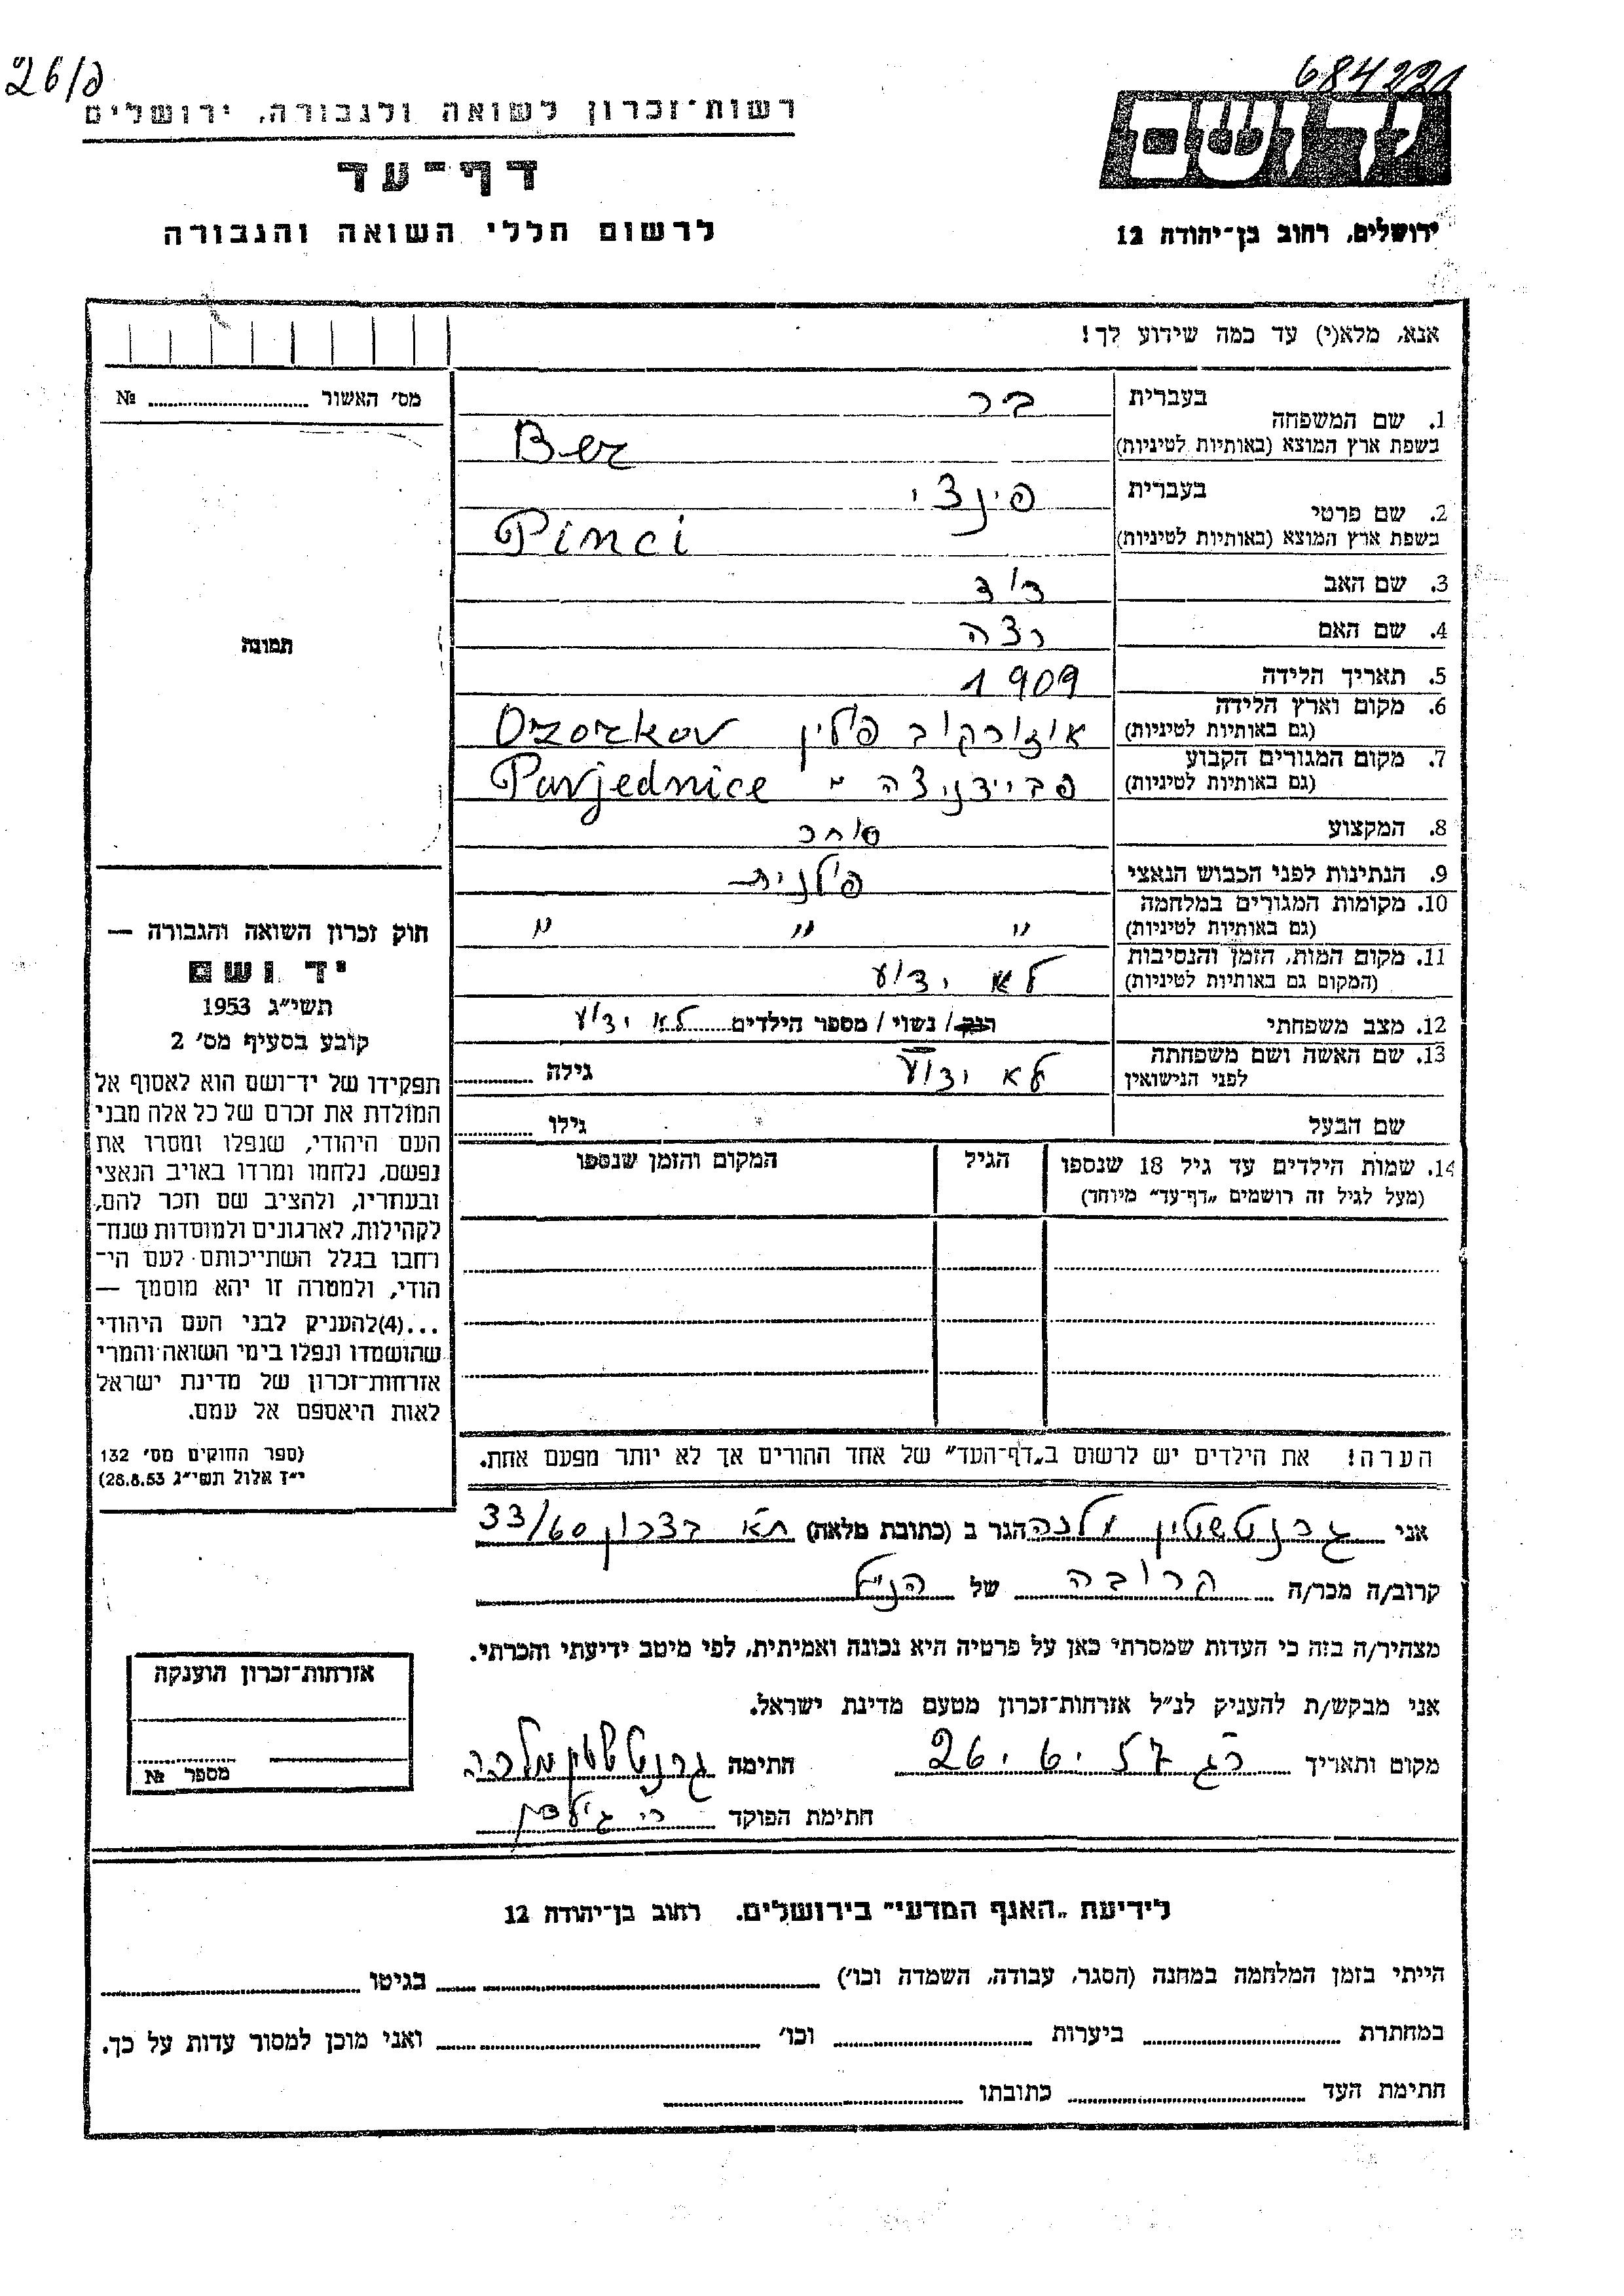 26/פ
684221
רשות־זכרון לשואה ולגבורה, ירושלים
דף־עד
לרשום חללי השואה והגבורה
יד ושם
ירושלים, רחוב בן־יהודה 12
אנא, מלא(י) עד כמה שידוע לך!
מס׳ האשור № 
תמונה
חוק זכרון השואה והגבורה —
יד ושם
תשי״ג 1953
קובע בסעיף מס׳ 2
תפקידו של יד־ושם הוא לאסוף אל
המולדת את זכרם של כל אלה מבני
העם היהודי, שנפלו ומסרו את
נפשם, נלחמו ומרדו באויב הנאצי
ובעוזריו, ולהציב שם וזכר להם,
לקהילות, לארגונים ולמוסדות שנח־
רבו בגלל השתייכותם לעם הי־
הודי, ולמטרה זו יהא מוסמך —
...(4)להעניק לבני העם היהודי
שהושמדו ונפלו בימי השואה והמרי
אזרחות־זכרון של מדינת ישראל
לאות היאספם אל עמם.
(ספר החוקים מס׳ 132
י״ז אלול תשי״ג 28.8.53)
1. שם המשפחה בעברית בר
בשפת ארץ המוצא (באותיות לטיניות) Ber
2. שם פרטי בעברית פינצי
בשפת ארץ המוצא (באותיות לטיניות) Pinci
3. שם האב דוד
4. שם האם רצה
5. תאריך הלידה 1909
6. מקום וארץ הלידה (גם באותיות לטיניות) אוזורקוב פולין Ozorkov
7. מקום המגורים הקבוע (גם באותיות לטיניות) פביידניצה " Pavjednice
8. המקצוע סוחר
9. הנתינות לפני הכבוש הנאצי פולנית
10. מקומות המגורים במלחמה (גם באותיות לטיניות) " " "
11. מקום המות, הזמן והנסיבות (המקום גם באותיות לטיניות) לא ידוע
12. מצב משפחתי רווק / נשוי / מספר הילדים לא ידוע
13. שם האשה ושם משפחתה לפני הנישואין לא ידוע גילה
שם הבעל גילו
14. שמות הילדים עד גיל 18 שנספו (מעל לגיל זה רושמים „דף־עד״ מיוחד) הגיל המקום והזמן שנספו
הערה! את הילדים יש לרשום ב„דף־העד״ של אחד ההורים אך לא יותר מפעם אחת.
אני גרנטשטין מלכה הגר ב (כתובת מלאה) ת״א בצרון 33/60
קרוב/ה מכר/ה קרובה של הנ״ל
מצהיר/ה בזה כי העדות שמסרתי כאן על פרטיה היא נכונה ואמיתית, לפי מיטב ידיעתי והכרתי.
אני מבקש/ת להעניק לנ״ל אזרחות־זכרון מטעם מדינת ישראל.
מקום ותאריך ר״ג 26.6.57 חתימה גרנטשטין מלכה
חתימת הפוקד
אזרחות־זכרון הוענקה
מספר №
לידיעת „האגף המדעי״ בירושלים. רחוב בן־יהודה 12
הייתי בזמן המלחמה במחנה (הסגר, עבודה, השמדה וכו׳) בגיטו
במחתרת ביערות וכו׳ ואני מוכן למסור עדות על כך.
חתימת העד כתובתו